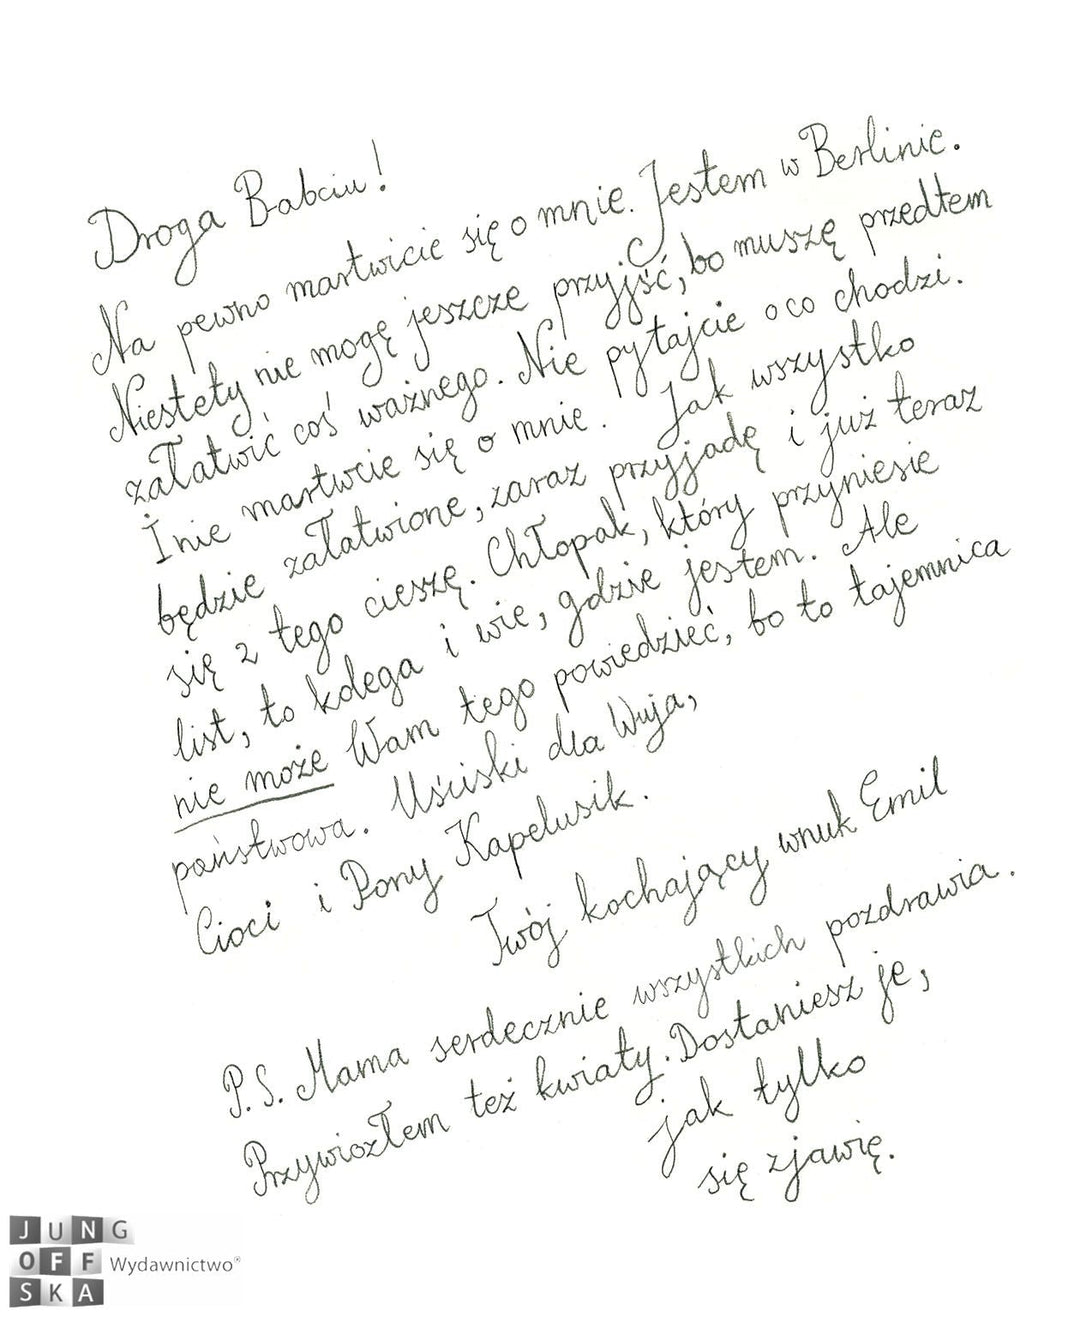 Droga Babciu!
Na pewno martwicie się o mnie. Jestem w Berlinie.
Niestety nie mogę jeszcze przyjść, bo muszę przedtem
załatwić coś ważnego. Nie pytajcie o co chodzi.
I nie martwcie się o mnie. Jak wszystko
będzie załatwione, zaraz przyjadę i już teraz
się z tego cieszę. Chłopak, który przyniesie
list, to kolega i wie, gdzie jestem. Ale
nie może Wam tego powiedzieć, bo to tajemnica
państwowa. Uściski dla Wuja,
Cioci i Pony Kapelusik.
Twój kochający wnuk Emil
P.S. Mama serdecznie wszystkich pozdrawia.
Przywiozłem też kwiaty. Dostaniesz je,
jak tylko
się zjawię.
JUNG
OFF Wydawnictwo®
SKA